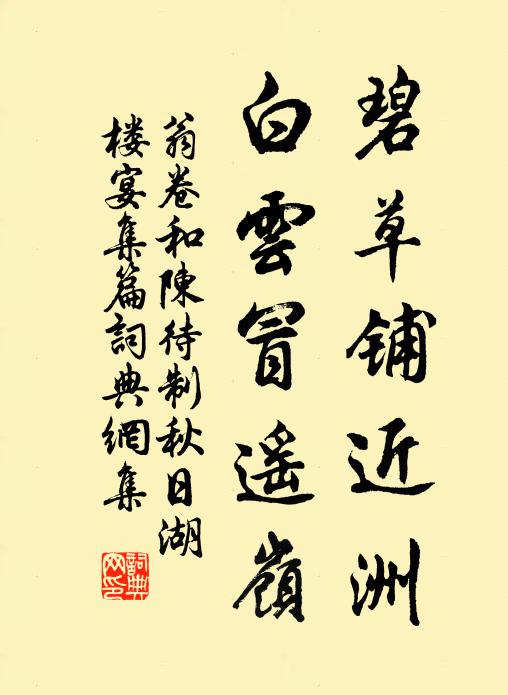 碧草铺近洲
白雲冒遥嶺
翁卷和陳待制秋日湖
楼宴集篇詞典網集
詞典
网印